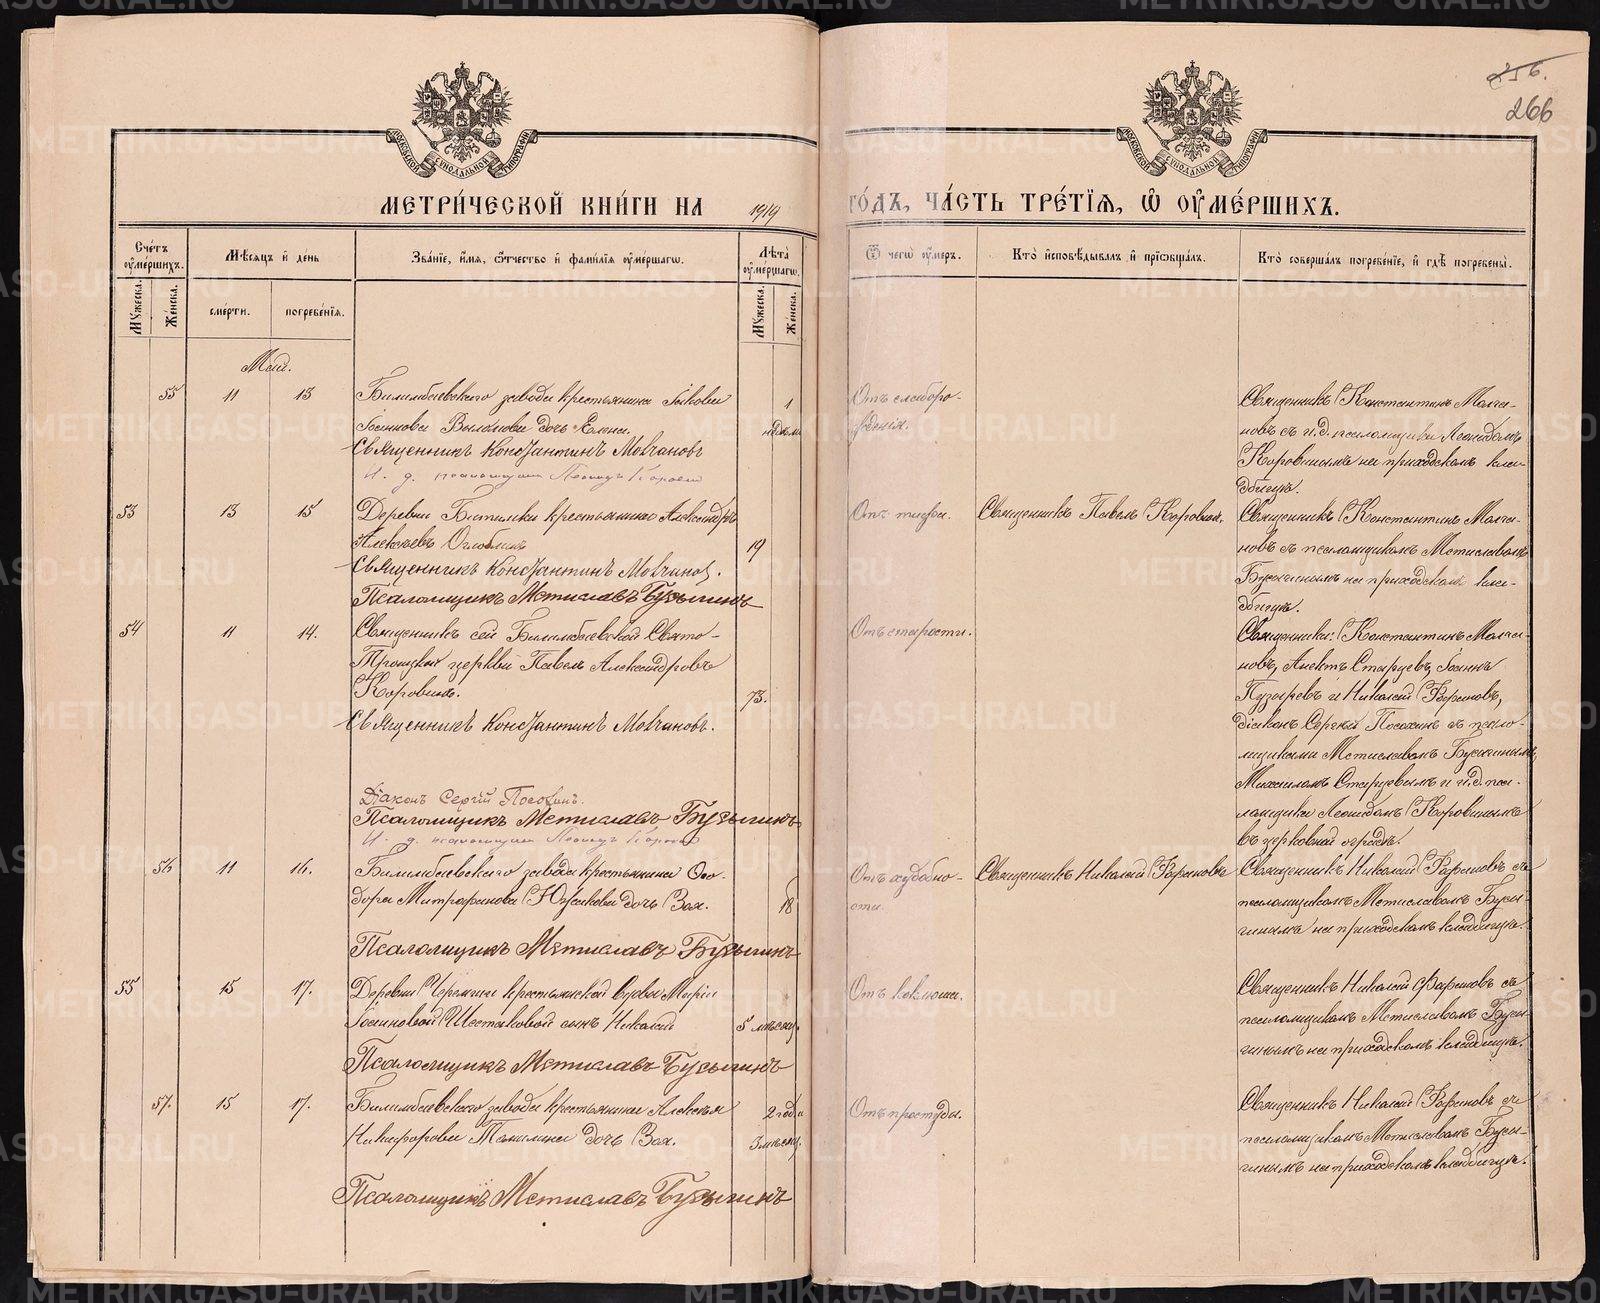 256.
266
МОСКОВСКОЙ СѴНОДАЛЬНОЙ ТИПОГРАФІИ
МОСКОВСКОЙ СѴНОДАЛЬНОЙ ТИПОГРАФІИ
МЕТРИ́ЧЕСКОЙ КНИ́ГИ НА 1919 ГО́ДЪ, ЧА́СТЬ ТРЕ́ТІѦ, Ѿ ОУ҆МЕ́РШИХЪ.
Сче́тъ оу҆ме́ршихъ.
Мꙋжеска.
Же́нска.
Мѣ́сѧцъ и҆ де́нь
сме́рти.
погребе́нїѧ.
Зва́нїе, и҆́мѧ, ѻ҆́тчество и҆ фами́лїѧ оу҆ме́ршагѡ.
Лѣ́та оу҆ме́ршагѡ.
Мꙋжеска.
Же́нска.
Ѿ чегѡ̀ оу҆́меръ.
Кто̀ и҆сповѣ́дывалъ и҆ прїѡбща́лъ.
Кто̀ соверша́лъ погребе́нїе, и҆ гдѣ̀ погребены̀.
Май.
55 11 13 Билимбаевскаго завода крестьянина Іакова
Іоаннова дочь Елена.
1 недѣли
Священникъ Константинъ Молчановъ
И. д. псаломщика Леонидъ Коровинъ
Отъ слаборо-
жденія.
Священникъ Константинъ Молча-
новъ съ и.д. псаломщика Леонидомъ
Коровинымъ на приходскомъ кла-
дбищѣ.
53 13 15 Деревни Битимки крестьянинъ Александръ
Алексѣевъ Оглоблинъ
19
Священникъ Константинъ Молчановъ.
Псаломщикъ Мстиславъ Бусыгинъ
Отъ тифа.
Священникъ Павелъ Коровинъ.
Священникъ Константинъ Молча-
новъ съ псаломщикомъ Мстиславомъ
Бусыгинымъ на приходскомъ кла-
дбищѣ.
54 11 14. Священникъ сей Билимбаевской Свято-
Троицкой церкви Павелъ Александровъ
Коровинъ.
73.
Священникъ Константинъ Молчановъ.
Діаконъ Сергій Посохинъ.
Псаломщикъ Мстиславъ Бусыгинъ
И. д. псаломщика Леонидъ Коровинъ
Отъ старости.
Священники: Константинъ Молча-
новъ, Старцевъ, Іоаннъ
Пузыревъ и Николай Фариновъ,
діаконъ Сергій Посохинъ съ псало-
мщиками Мстиславомъ Бусыгинымъ,
Михаиломъ Старцевымъ и и.д. пса-
ломщика Леонидомъ Коровинымъ
въ церковной оградѣ.
56 11 16. Билимбаевскаго завода крестьянина Ѳео-
дора Митрофанова Южакова дочь Зоя.
18
Псаломщикъ Мстиславъ Бусыгинъ
Отъ худобно-
сти.
Священникъ Николай Фариновъ
Священникъ Николай Фариновъ съ
псаломщикомъ Мстиславомъ Бусы-
гинымъ на приходскомъ кладбищѣ.
55 15 17. Деревни Черемши крестьянской вдовы Маріи
Іоанновой Шестаковой сынъ Николай
5 мѣсяц.
Псаломщикъ Мстиславъ Бусыгинъ
Отъ коклюша.
Священникъ Николай Фариновъ съ
псаломщикомъ Мстиславомъ Бусы-
гинымъ на приходскомъ кладбищѣ.
57. 15 17. Билимбаевскаго завода крестьянина Алексѣя
Никифорова Томилина дочь Зоя.
2 года
3 мѣсяц.
Псаломщикъ Мстиславъ Бусыгинъ
Отъ простуды.
Священникъ Николай Фариновъ съ
псаломщикомъ Мстиславомъ Бусы-
гинымъ на приходскомъ кладбищѣ.
METRIKI.GASO-URAL.RU